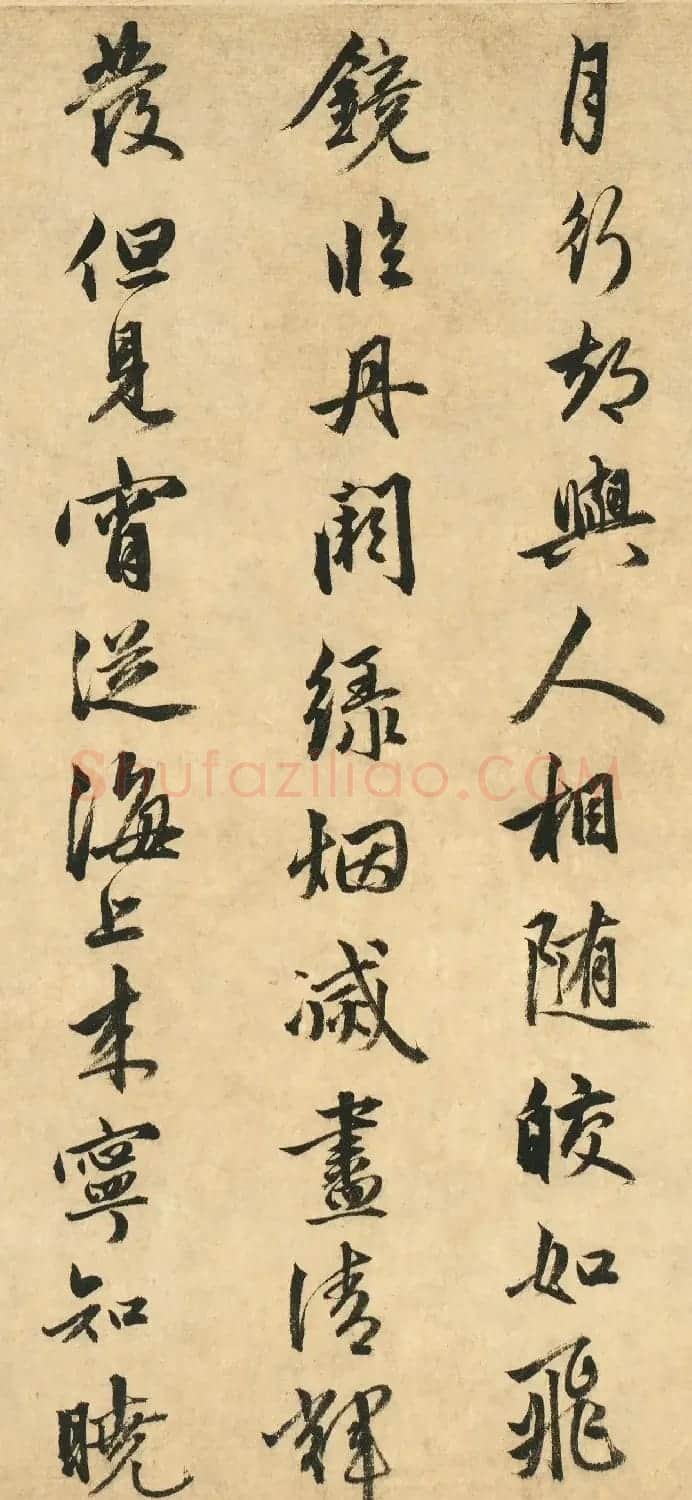 月行却與人相隨皎如飛
鏡臨丹闕綠烟滅盡清輝
發但見宵從海上來寧知曉
Shufaziliao.COM